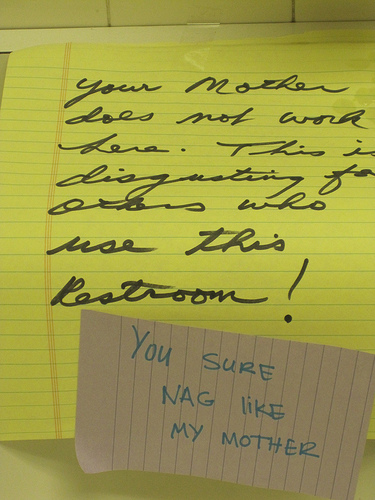 your Mother
does not work
here. This is
disgusting fo
others who
use this
Restroom!
YOU SURE
NAG liKE
MY MOTHER